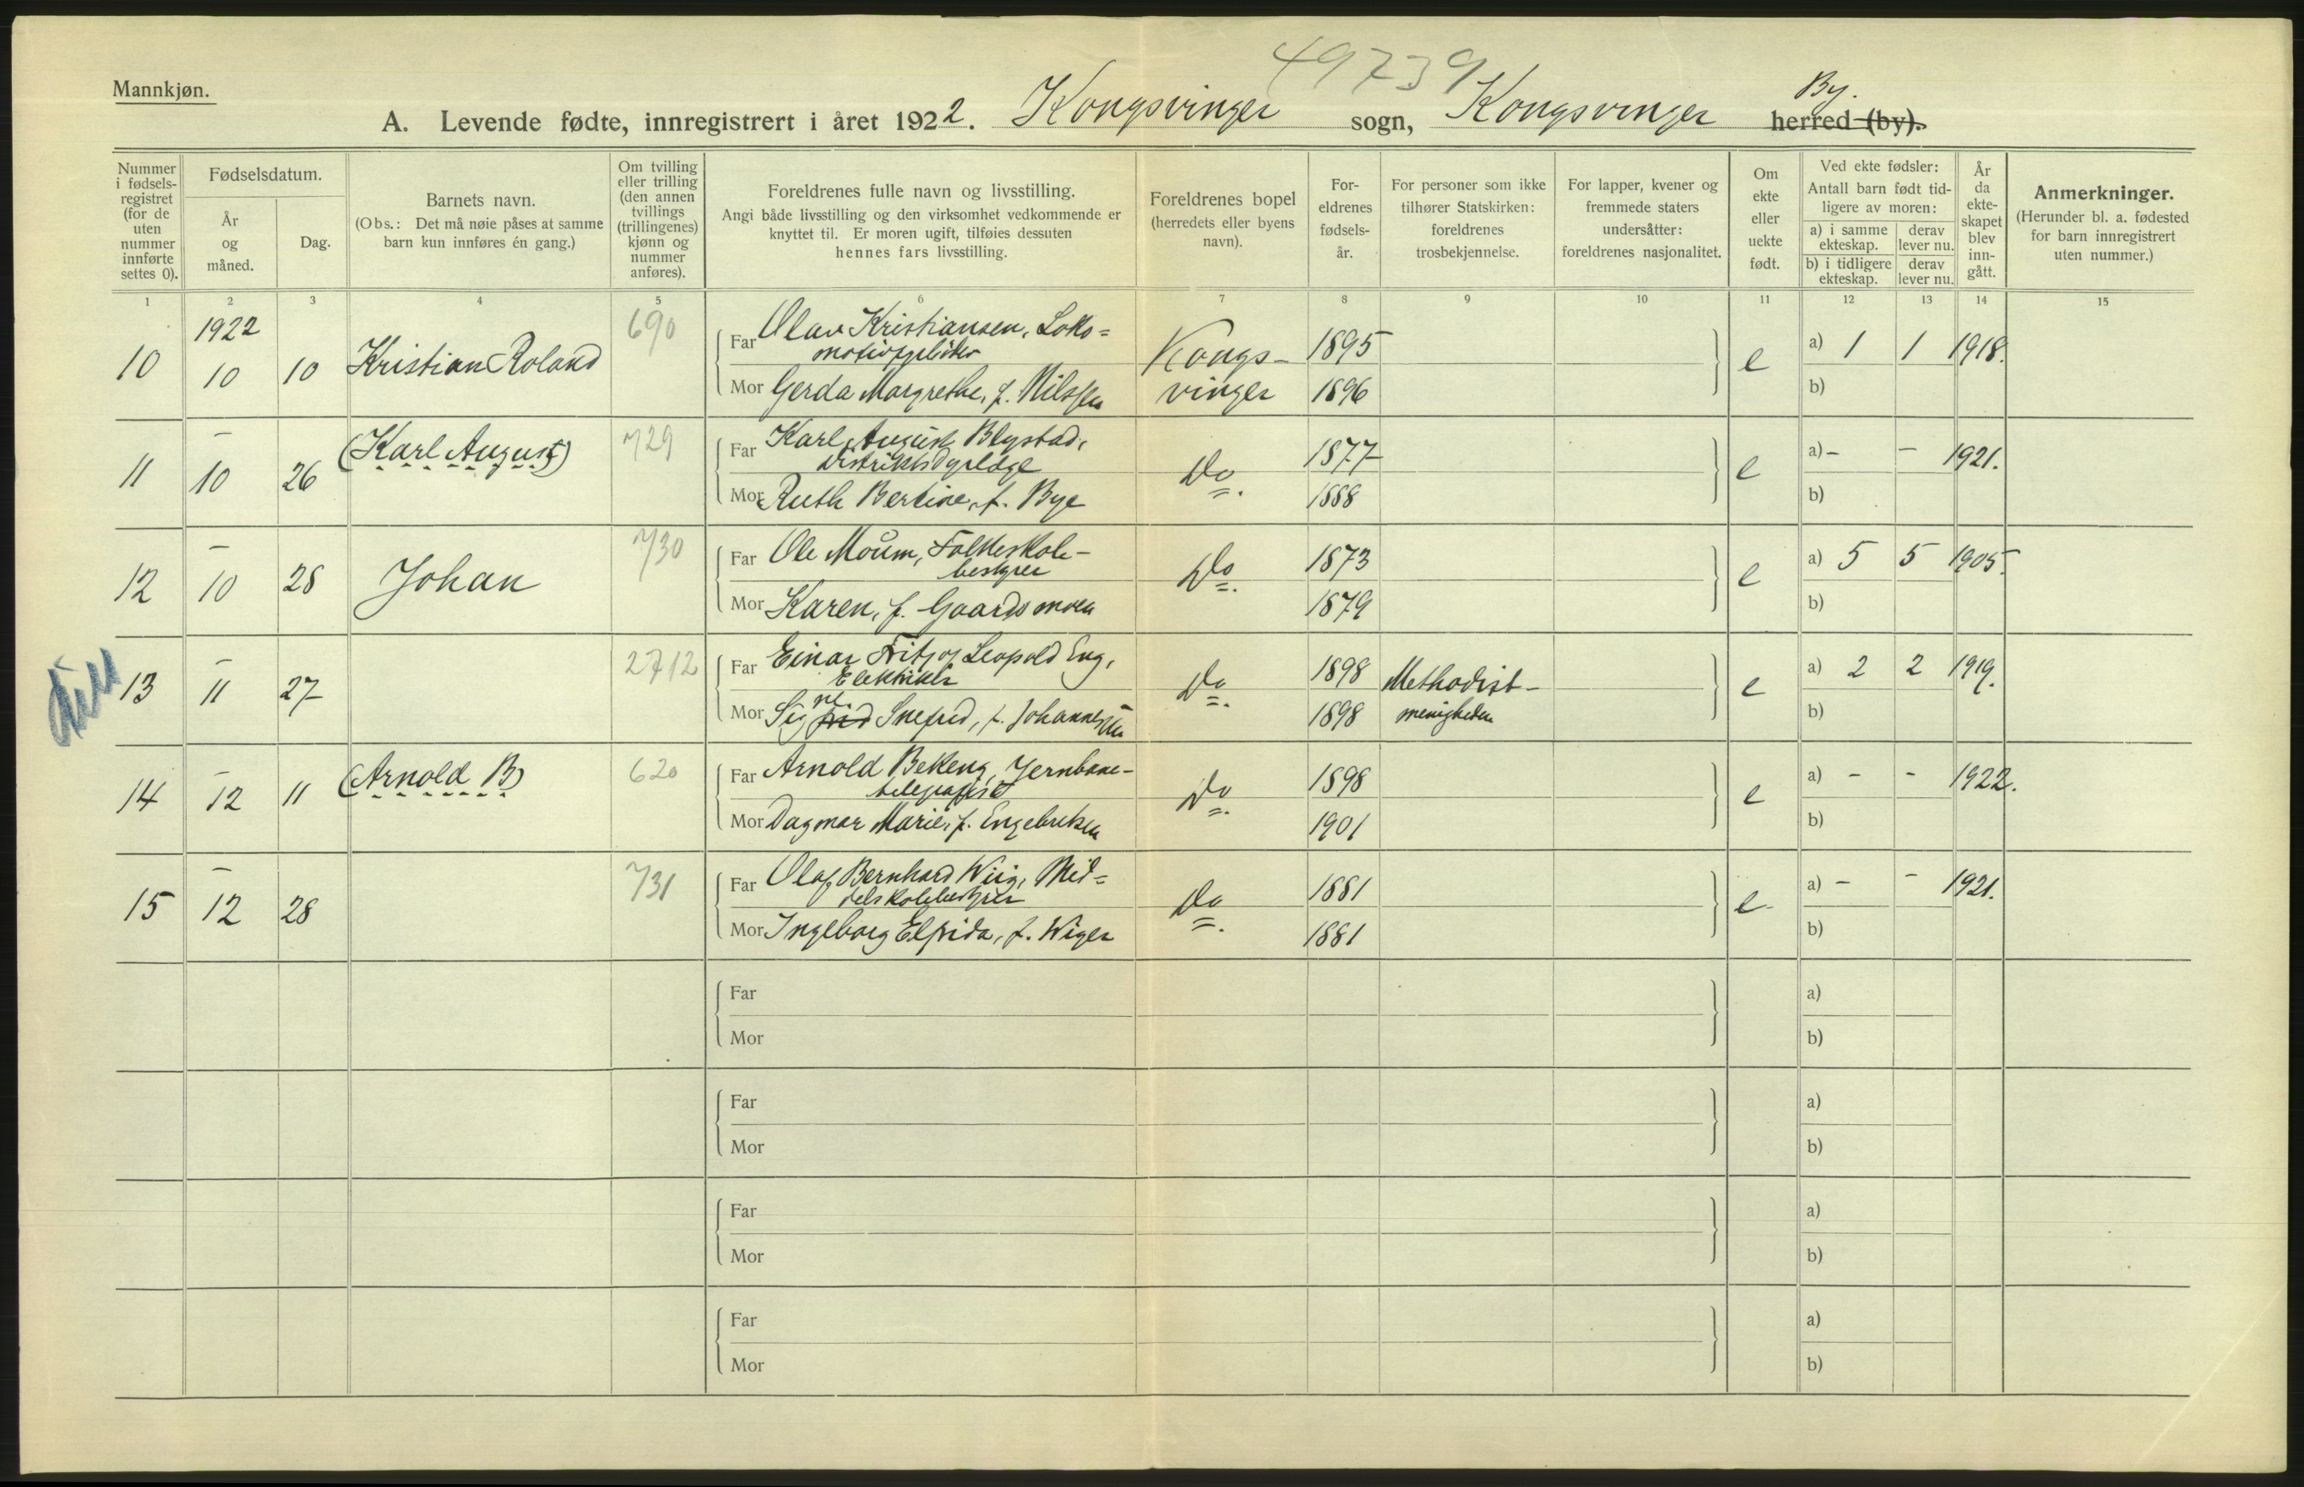 49739
Mannkjøn.
By.
A. Levende fødte, innregistrert i året 1922. Kongsvinger sogn, Kongsvinger herred (by).
Nummer i fødsels-registret (for de uten nummer innførte settes 0).
Fødselsdatum.
År og måned.
Dag.
Barnets navn.
(Obs.: Det må nøie påses at samme barn kun innføres én gang.)
Om tvilling eller trilling (den annen tvillings (trillingenes) kjønn og nummer anføres).
Foreldrenes fulle navn og livsstilling.
Angi både livsstilling og den virksomhet vedkommende er knyttet til. Er moren ugift, tilføies dessuten hennes fars livsstilling.
Foreldrenes bopel
(herredets eller byens navn).
For-eldrenes fødsels-år.
For personer som ikke tilhører Statskirken: foreldrenes trosbekjennelse.
For lapper, kvener og fremmede staters undersåtter: foreldrenes nasjonalitet.
Om ekte eller uekte født.
Ved ekte fødsler:
Antall barn født tid-ligere av moren:
a) i samme ekteskap.
derav lever nu.
b) i tidligere ekteskap.
derav lever nu.
År da ekte-skapet blev inn-gått.
Anmerkninger.
(Herunder bl. a. fødested for barn innregistrert uten nummer.)
1 2 3 4 5 6 7 8 9 10 11 12 13 14 15
10 1922 10 10 Kristian Roland 690
Far Olav Kristiansen, Loko=
motivfyrbøter
Mor Gerda Margrethe, f. Nilssen
Kongs-
vinger
1895
1896
e a) 1 1 1918.
b)
11 – 10 26 (Karl August) 729
Far Karl August Blystad,
Distriktsdyrlæge
Mor Ruth Bertine, f. Bye
Do
1877
1888
e a) – – 1921.
b)
12 – 10 28 Johan 730
Far Ole Moum, Folkeskole-
bestyrer
Mor Karen, f. Gaardsmoen
Do.
1873
1879
e a) 5 5 1905.
b)
13 – 11 27 2712
Far Einar Fritjof Leopold Eng,
Elektriker
Mor Signe Snefrid, f. Johannessen
Do.
1898
1898
Methodist-
menigheden
e a) 2 2 1919.
b)
14 – 12 11 (Arnold B) 620
Far Arnold Bekeng, Jernbane-
telegrafist
Mor Dagmar Marie, f. Engebretsen
Do.
1898
1901
e a) – – 1922.
b)
15 – 12 28 731
Far Olaf Bernhard Wiig, Mid=
delskolebestyrer
Mor Ingeborg Elfrida, f. Wiger
Do.
1881
1881
e a) – – 1921.
b)
Far a)
Mor b)
Far a)
Mor b)
Far a)
Mor b)
Far a)
Mor b)